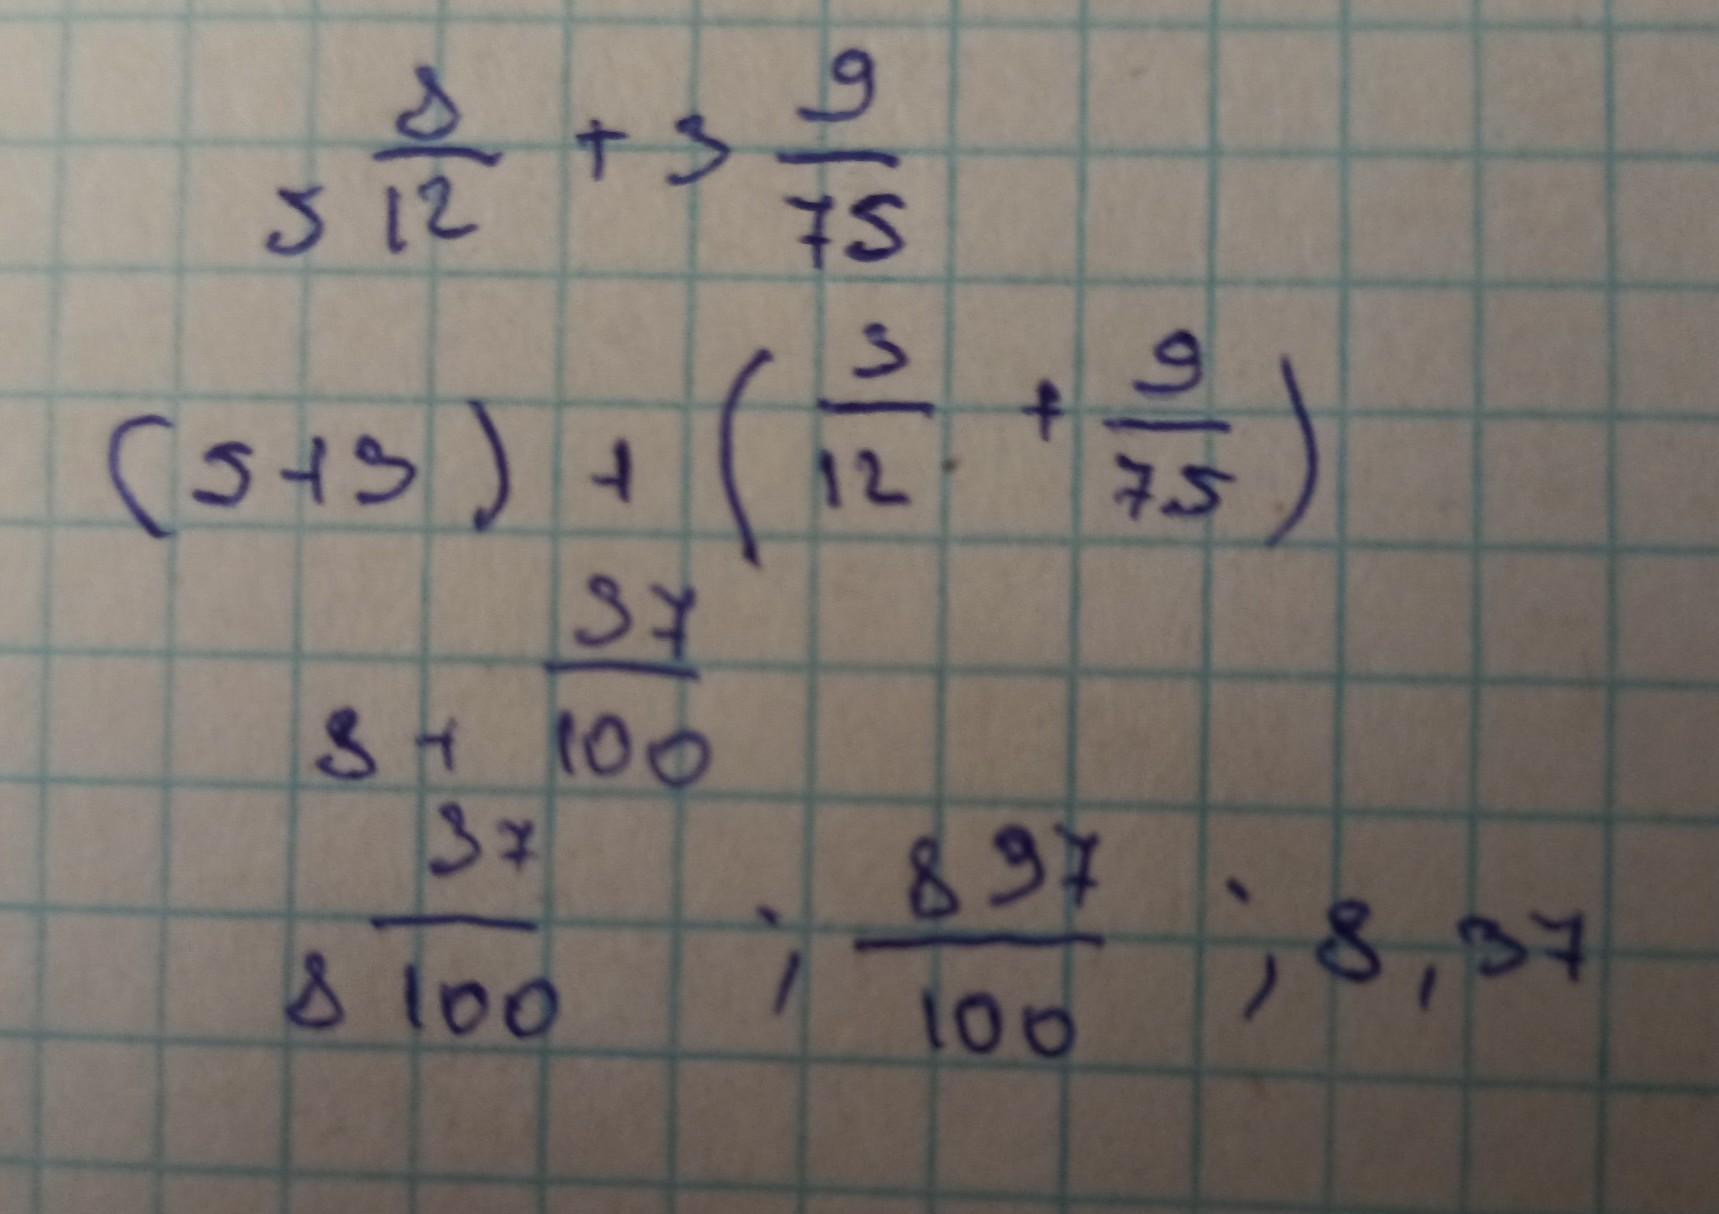 5 8/12 + 3 9/75
(5+3) + (3/12 + 9/75)
8 + 37/100
8 37/100 ; 837/100 ; 8,37